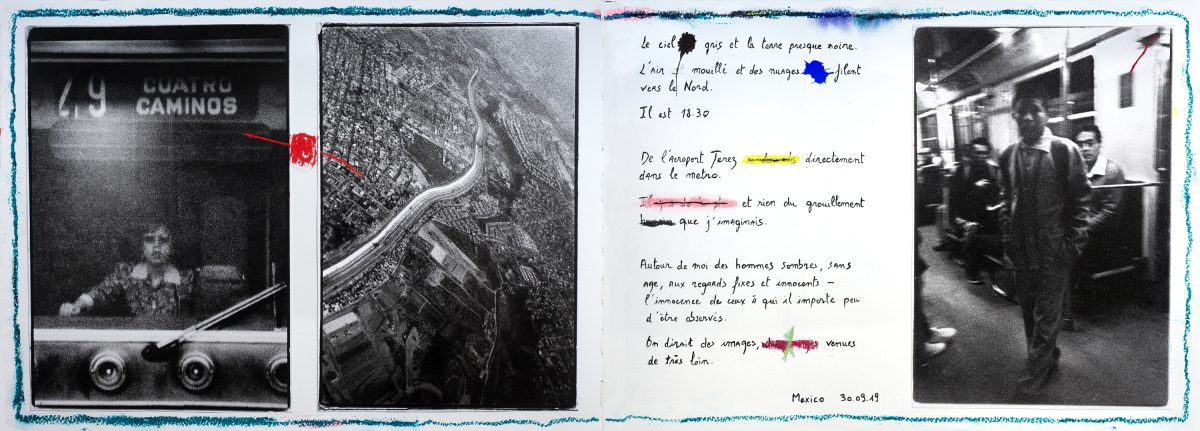 29 CUATRO
CAMINOS
Le ciel gris et la terre presque noire.
L'air mouillé et des nuages filent
vers le Nord.
Il est 18.30
De l'Aeroport Jerez directement
dans le metro.
et rien du grouillement
humain que j'imaginais.
Autour de moi des hommes sombres, sans
age, aux regards fixes et innocents –
l'innocence de ceux à qui il importe peu
d'être observés.
On dirait des images, venues
de très loin.
Mexico 30.09.19